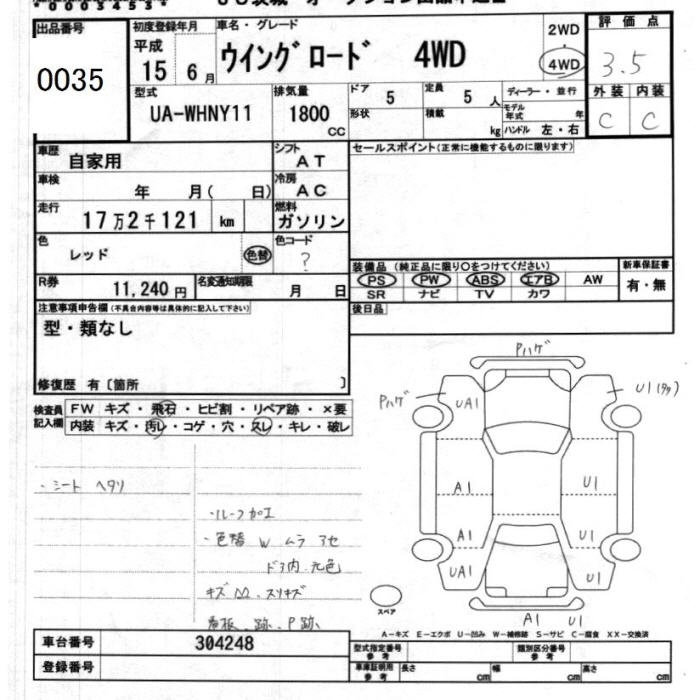 出品番号
0035
初度登録年月
平成
15 6月
車名・グレード
ウイングロード 4WD
2WD
4WD
評価点
3.5
型式
UA-WHNY11
排気量
1800
CC
ドア 5
定員 5 人
形状
積載 kg
ディーラー・並行
モデル年式 年
ハンドル 左・右
外装 内装
C C
車歴
自家用
シフト
AT
セールスポイント(正常に機能するものに限ります)
車検
年 月( 日)
冷房
AC
走行
17万2千121 km
燃料
ガソリン
色
レッド
色替
色コード
?
装備品 (純正品に限り〇をつけてください)
新車保証書
PS PW ABS エアB AW
有・無
SR ナビ TV カワ
R券
11,240円
名変通知期限
月 日
後日品
注意事項申告欄(不具合内容等は具体的に記入して下さい)
型・類なし
修復歴 有〔箇所 〕
検査員記入欄
FW キズ・飛石・ヒビ割・リペア跡・×要
内装 キズ・汚レ・コゲ・穴・スレ・キレ・破レ
・シート ヘタリ
・ルーフ加工
・色替 W ムラ アセ
ドア内 元色
キズ 凹 スリキズ
看板、跡、P跡、
Pハゲ
Pハゲ
UA1
U1
A1
U1
A1
U1
UA1
U1
A1 U1
スペア
A－キズ E－エクボ U－凹み W－補修跡 S－サビ C－腐食 XX－交換済
車台番号
304248
登録番号
型式指定番号
参考
類別区分番号
参考
車庫証明用
参考
長さ cm
幅 cm
高さ cm